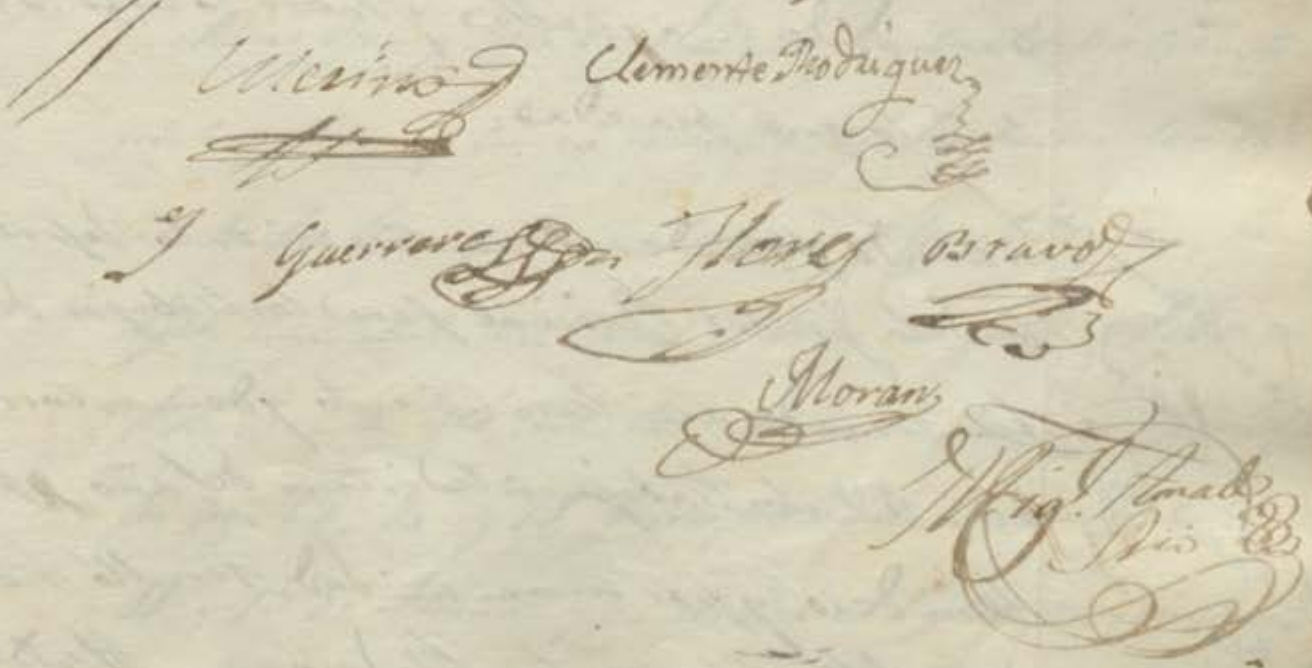 Merino Clemente Rodriguez
Guerrero Flores Bravo
Moran
Mig.l Amad
Srio